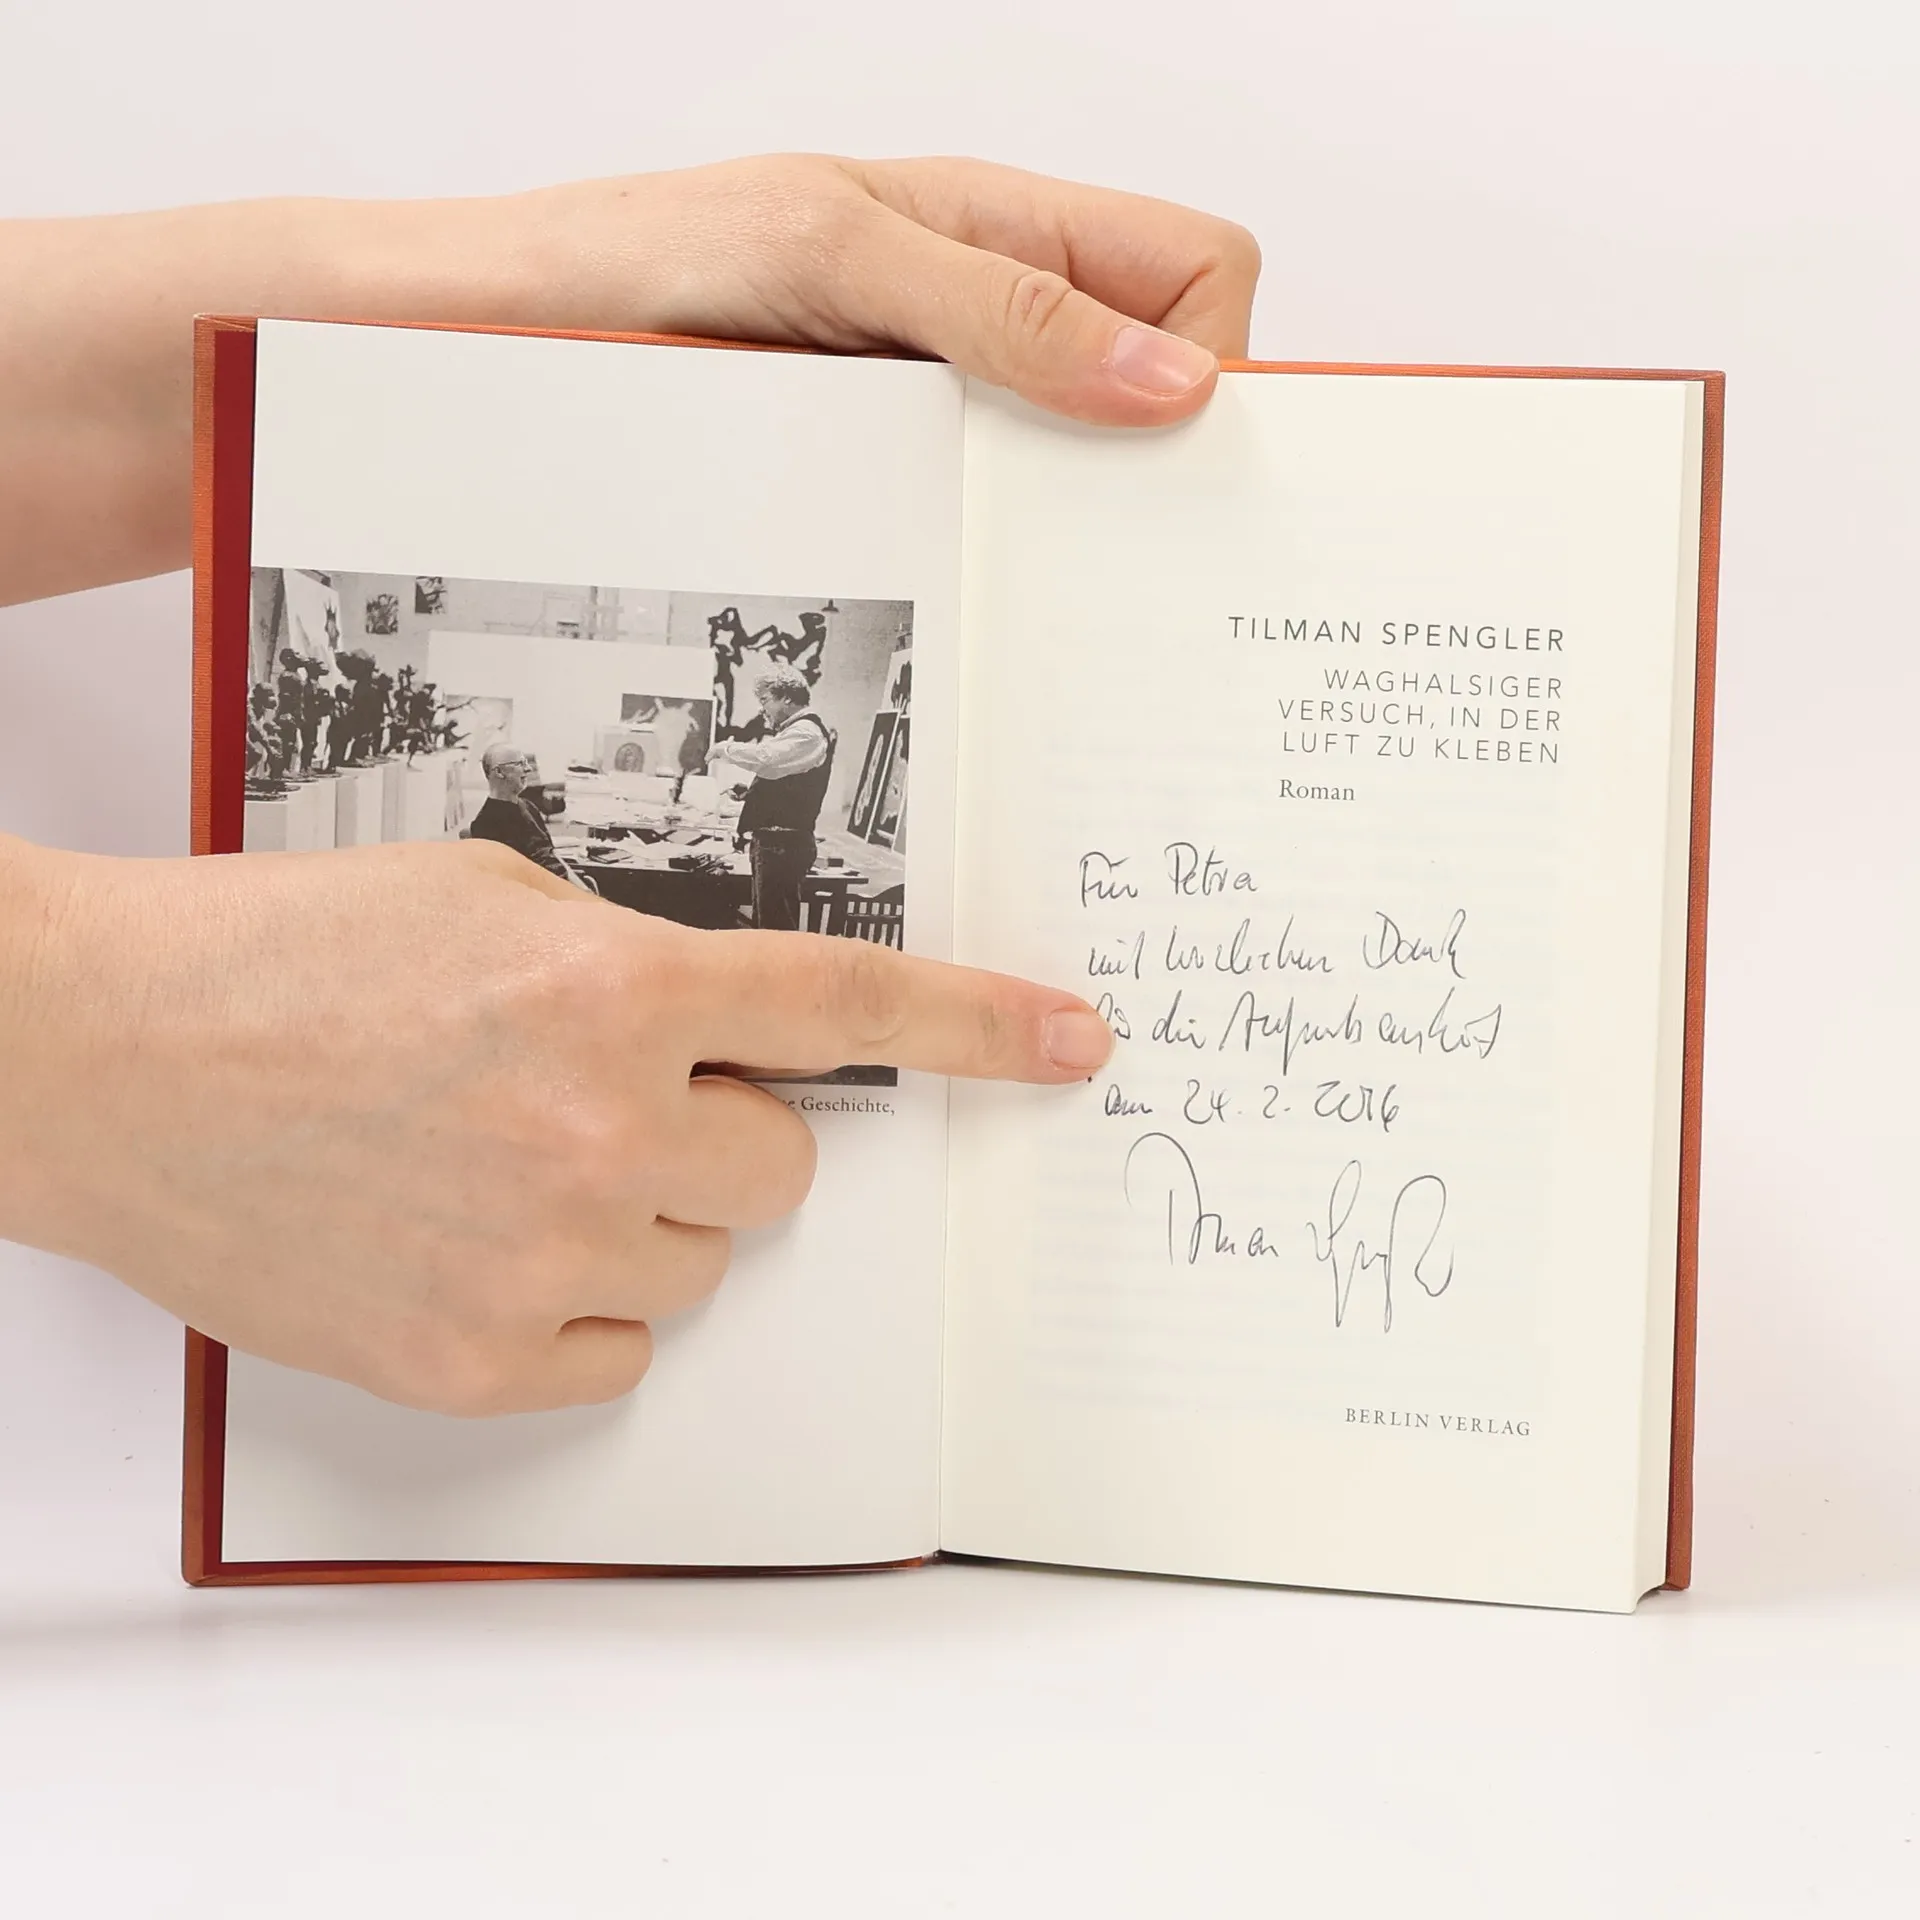 e Geschichte,
TILMAN SPENGLER
WAGHALSIGER
VERSUCH, IN DER
LUFT ZU KLEBEN
Roman
Für Petra
mit herzlichem Dank
für die
am 24.2.2016
Tilman Spengler
BERLIN VERLAG